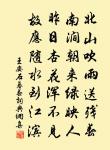 北山吹雨送残春
南涧朝来绿映人
昨日杏花浑不见
故应随水到江滨
王安石春泰詞典網集